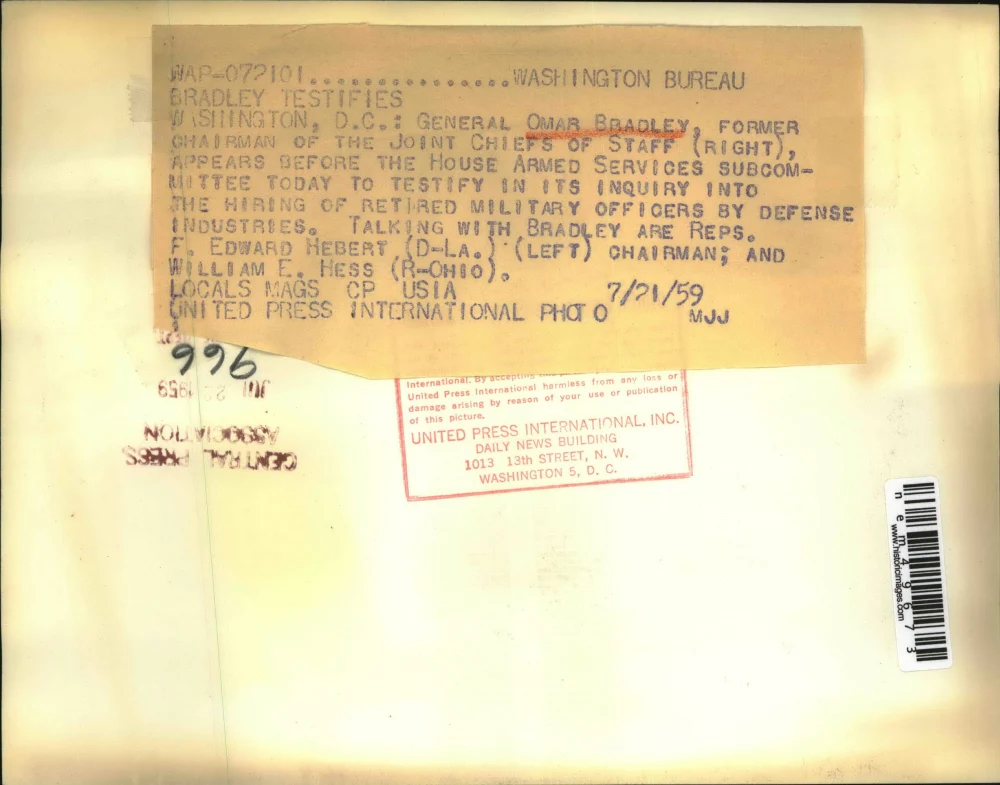 WAP-072101................WASHINGTON BUREAU
BRADLEY TESTIFIES
WASHINGTON, D.C.: GENERAL OMAR BRADLEY, FORMER
CHAIRMAN OF THE JOINT CHIEFS OF STAFF (RIGHT),
APPEARS BEFORE THE HOUSE ARMED SERVICES SUBCOM-
MITTEE TODAY TO TESTIFY IN ITS INQUIRY INTO
THE HIRING OF RETIRED MILITARY OFFICERS BY DEFENSE
INDUSTRIES. TALKING WITH BRADLEY ARE REPS.
F. EDWARD HEBERT (D-LA.) (LEFT) CHAIRMAN; AND
WILLIAM E. HESS (R-OHIO).
LOCALS MAGS CP USIA 7/21/59
UNITED PRESS INTERNATIONAL PHOTO MJJ
996
1959
CENTRAL PRESS
ASSOCIATION
International. By accepting
United Press International harmless from any loss or
damage arising by reason of your use or publication
of this picture.
UNITED PRESS INTERNATIONAL, INC.
DAILY NEWS BUILDING
1013 13th STREET, N. W.
WASHINGTON 5, D. C.
nem49673
www.historicimages.com